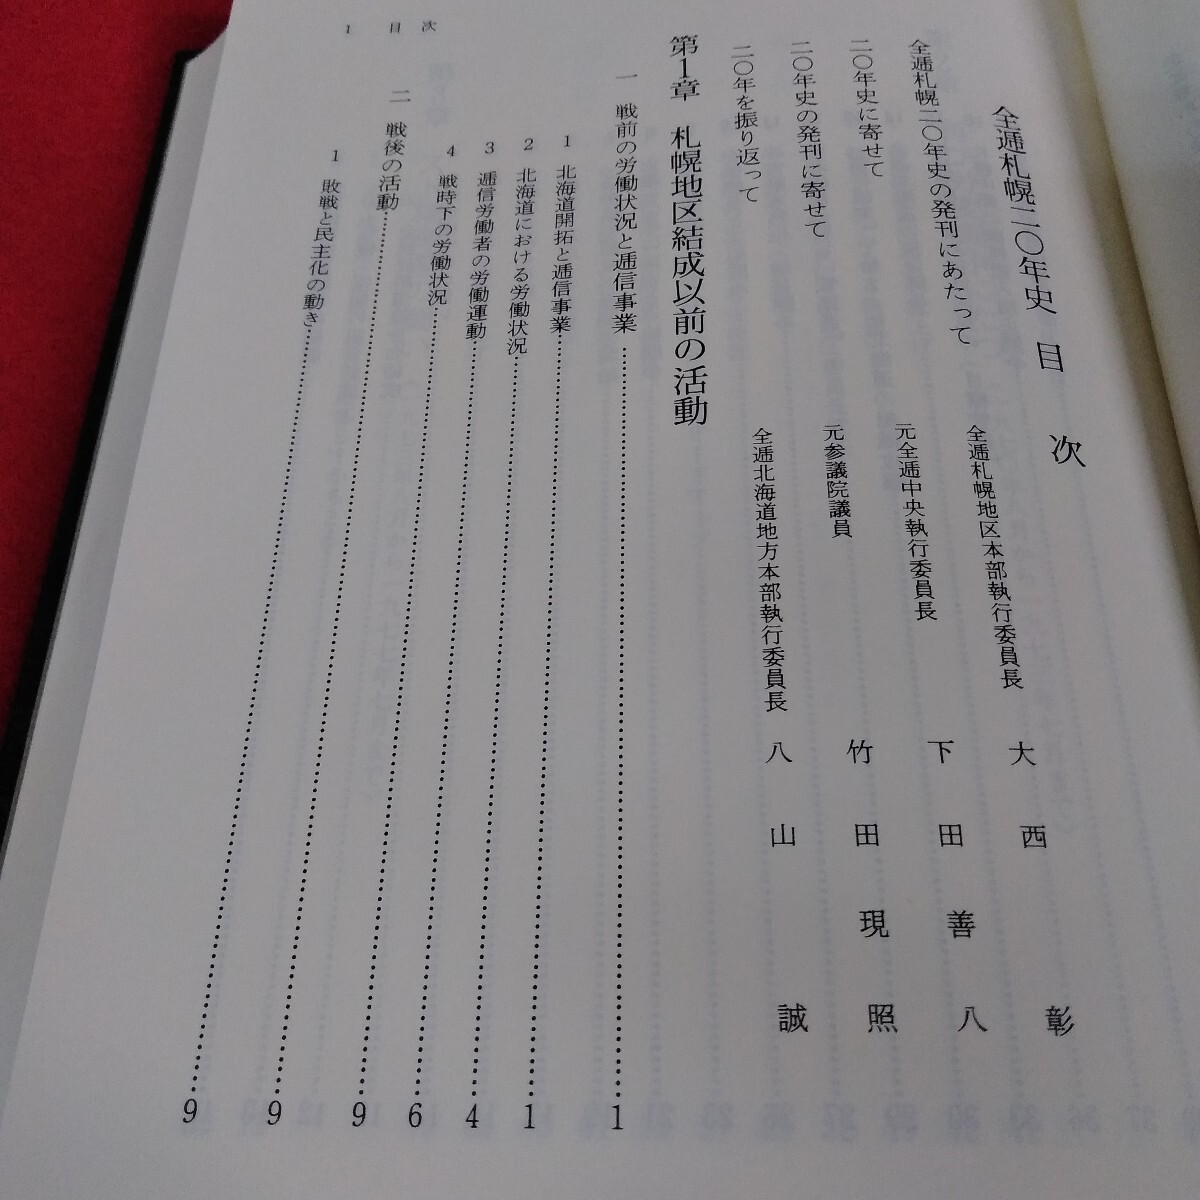 1 目 次
全逓札幌二〇年史 目 次
全逓札幌二〇年史の発刊にあたって 全逓札幌地区本部執行委員長 大西 彰
二〇年史に寄せて 元全逓中央執行委員長 下田善八
二〇年史の発刊に寄せて 元参議院議員 竹田現照
二〇年を振り返って 全逓北海道地方本部執行委員長 八山 誠
第1章 札幌地区結成以前の活動
一 戦前の労働状況と逓信事業……………1
1 北海道開拓と逓信事業……………1
2 北海道における労働状況……………4
3 逓信労働者の労働運動……………6
4 戦時下の労働状況……………9
二 戦後の活動……………9
1 敗戦と民主化の動き……………9